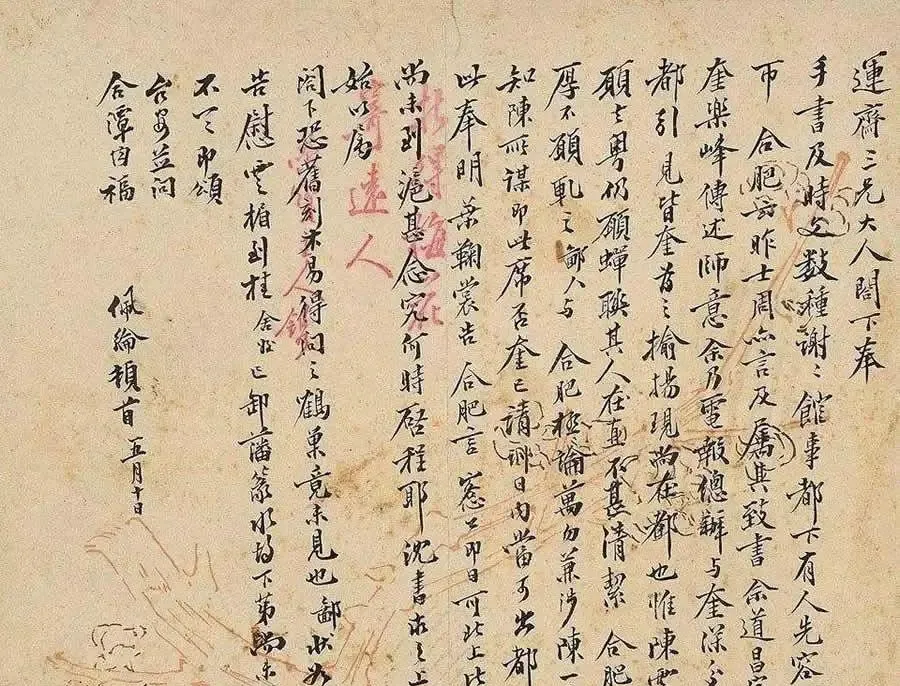 運齋三兄大人閣下奉
手書及時文數種謝〻館事都下有人先容
市 合肥昨士周亦言及屬其致書余道昌
奎樂峰傳述師意余乃電報總辦与奎深
都引見皆奎為之揄揚現尚在都也惟陳
願去粵仍願蟬聯其人在直不甚清潔 合肥
厚不願軋之鄙人与 合肥極論萬勿兼涉陳一
知陳所謀即此席否奎已請日內當可出都
此奉明葉鞠裳告 合肥言 窓公即日可北上
尚未到滬甚念究何時啟程耶沈書求之上
始以屬
閣下恐舊刻不易得詢之鶴巢竟未見也鄙狀
告慰雲楣到桂舍已卸藩篆水下第尚未
不一即頌
台安並問
合潭曰福
佩綸頓首 五月十日
寄遠人